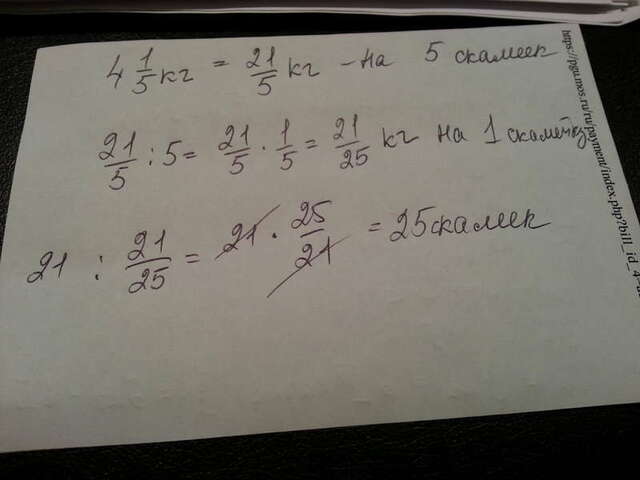 4 1/5 кг = 21/5 кг - на 5 скамеек
21/5 : 5 = 21/5 · 1/5 = 21/25 кг на 1 скамейку
21 : 21/25 = 21 · 25/21 = 25 скамеек
https://pgu.mos.ru/ru/payment/index.php?bill_id_4=